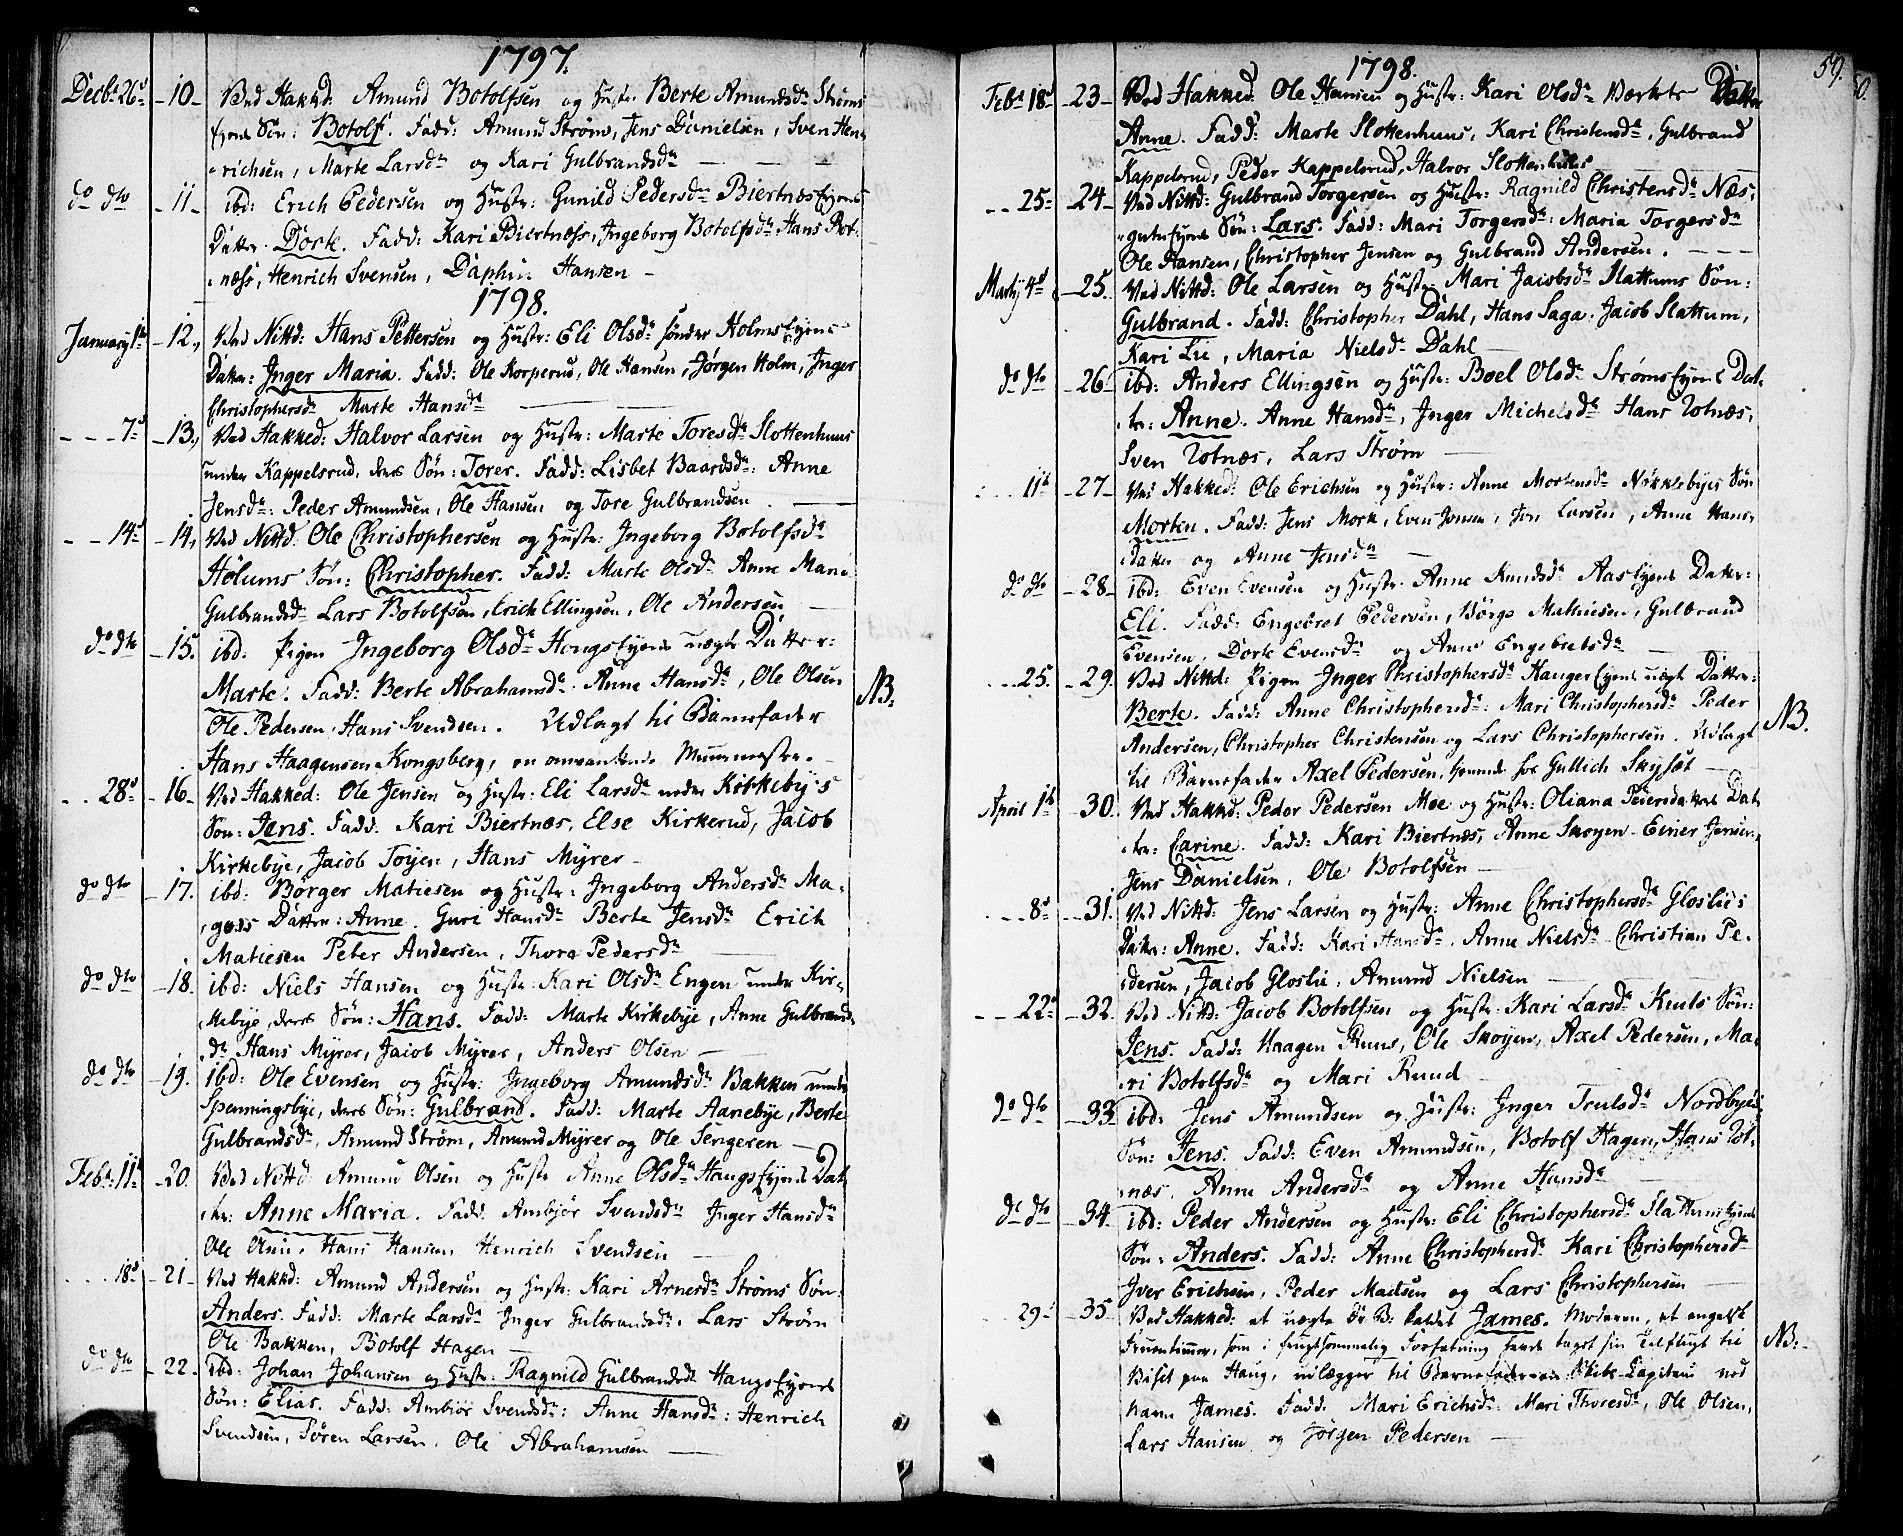 1797.
Decbr 26de -10- Ved Hakkd. Amund Botolfsen og Hustr: Berte Amundsdr Strøms
Eyens Søn: Botolf. Fadd: Amund Strøm, Jens Danielsen, Sven Hen
richsen, Marte Larsdr og Kari Gulbrandsdr
do dto -11- ibd: Erich Pedersen og Hustr: Gunild Pedersdr Biertnæs Eyens
Datter: Dorte. Fadd: Kari Biertness, Ingeborg Botolfsdr Hans Rot-
næss, Henrich Svensen, Daphin Hansen -
1798.
January 1te -12, Ved Nittd: Hans Pettersen og Hustr: Eli Olsdr sønder Holms Eyens
Datter: Inger Maria. Fadd: Ole Korperud, Ole Hansen, Jørgen Holm, Inger
Christophersdr Marte Hansdr
- - - 7de -13, Ved Hakked: Halvor Larsen og Hustr: Marte Toresdr Slottenhuus
under Kappelsrud, deres Søn: Torer. Fadd: Lisbet Baardsdr: Anne
Jensdr: Peder Amundsen, Ole Hansen og Tore Gulbrandsen
- - 14de -14, Ved Nittd: Ole Christophersen og Hustr: Ingeborg Botolfsdr
Hølums Søn: Christopher. Fadd: Marte Olsdr Anne Marie
Gulbrandsdr Lars Botolfsen, Erich Ellingsen, Ole Andersen
do dto -15. ibd: Pigen Ingeborg Olsdr Haugs Eyens uægte Datter:
Marte. Fadd: Berte Abrahamsdr. Anne Hansdr, Ole Olsen NB:
Ole Pedersen, Hans Svendsen. Udlagt til Barnefader
Hans Haagensen Kongsberg, en omvankende Muurmester.
. . 28de -16- Ved Hakked: Ole Jensen og Hustr: Eli Larsdr neder Kirkeby's
Søn: Jens. Fadd: Kari Biertnæs, Else Kirkerud, Jacob
Kirkebye, Jacob Toyen, Hans Myrer-
do dto -17. ibd: Børger Matiesen og Hustr: Ingeborg Andersdr Ma-
Datter: Anne. Guri Hansdr Berte Jensdr Erich
Matiesen Peter Andersen, Thora Pedersdr
do dto -18. ibd: Niels Hansen og Hustr: Kari Olsdr Engen under Kir-
kebye, deres Søn: Hans. Fadd: Marte Kirkebye, Anne Gulbrands
dr Hans Myrer, Jacob Myrer, Anders Olsen
do dto -19. ibd: Ole Evensen og Hustr: Ingeborg Amundsdr Bakken under
Spenningsbye, deres Søn: Gulbrand. Fadd: Marte Aanebye, Berte
Gulbrandsdr, Amund Strøm, Amund Myrer og Ole Sengeren -
Febr: 11te -20. Ved Nittd. Amund Olsen og Hustr Anne Olsdr Haugs Eyens Dat
ter: Anne Maria. Fadd. Ambjør Svendsdr Inger Hansdr
Ole Hans Hansen Henrich Svendsen
. . . . 18de -21- Ved Hakkd: Amund Andersen og Hustr: Kari Arnesdr Strøms Søn:
Anders. Fadd: Marte Larsdr Inger Gulbrandsdr. Lars Strøm
Ole Bakken, Botolf Hagen
do dto -22. ibd: Johan Johansen og Hustr: Ragnild Gulbrandsdr Haugs Eyens
Søn: Elias. Fadd: Ambiør Svendsdr: Anne Hansdr: Henrich
Svendsen, Søren Larsen, Ole Abrahamsen
1798. 59.
Febr 18de -23- Ved Hakked. Ole Hansen og Hustr: Kari Olsdr Værkets Datter
Anne. Fadd: Marte Slottenhuus, Kari Christensdr, Gulbrand
Kappelsrud, Peder Kappelsrud, Halvor Slottenhuus
- - 25de -24- Ved Nittd: Gulbrand Torgersen og Hustr: Ragnild Christensdr Næs-
Eyens Søn: Lars. Fadd: Mari Torgersdr: Maria Torgersdr
Ole Hansen, Christopher Jensen og Gulbrand Andersen.
Martij 4de -25. Ved Nittd: Ole Larsen og Hustr: Mari Jacobsdr Slattums Søn:
Gulbrand. Fadd: Christopher Dahl, Hans Saga. Jacob Slattum,
Kari Lie, Maria Nielsdr Dahl
do dto -26- ibd: Anders Ellingsen og Hustr: Boel Olsdr Strøms Eyens Dat-
ter: Anne. Anne Hansdr, Inger Michelsdr Hans Rotnæs,
Sven Rotnæs, Lars Strøm
. . . 11te -27- Ved Hakked: Ole Erichsen og Hustr: Anne Mortensdr Nøkklebyes Søn
Morten. Fadd: Jens Mork, Even Jensen, Jon Larsen, Anne Hans-
Datter og Anne Jensdr
do dto -28- ibd: Even Evensen og Hustr. Anne Knudsdr Aas Eyens Datter:
Eli. Fadd: Engebret Pedersen, Børge Mathiesen, Gulbrand
Evensen, Dorte Evensdr og Anne Engebretsdr
. . .25. -29. Ved Nittd: Pigen Inger Christophersdr Hauger Eyens uægte Datter:
Berte. Fadd: Anne Christophersdr: Mari Christophersdr Peder NB.
Andersen, Christopher Christensen og Lars Christophersen. Udlagt
til Barnefader Axel Pedersen, tjenende hos Gullich Skyset
April 1te -30. Ved Hakkd: Peder Pedersen Moe og Hustr: Oliana Peiersdatter Dat
ter: Carine. Fadd: Kari Biertnæs, Anne Skoyen - Einer Jensen,
Jens Danielsen, Ole Botolfsen
. . . 8de -31. Ved Nittd: Jens Larsen og Hustr: Anne Christophersdr Gloslies
Datter: Anne. Fadd: Kari Hansdr. Anne Nielsdr Christian Pe-
dersen, Jacob Glosli, Amund Nielsen
- - 22de -32. Ved Nittd: Jacob Botolfsen og Hustr: Kari Larsdr Kruls Søn:
Jens. Fadd: Haagen Ruus, Ole Skoyen, Axel Pedersen, Ma-
ri Botolfsdr og Mari Ruud
do dto -33 ibd: Jens Amundsen og Hustr: Inger Trulsdr Nordbyes
Søn: Jens. Fadd: Even Amundsen, Botolf Hagen, Hans Rot-
næs. Anne Andersdr og Anne Hansdr
do dto -34. ibd: Peder Andersen og Hustr: Eli Christophersdr Slattums Eyens
Søn: Anders. Fadd: Anne Christophersdr Kari Christophersdr
Iver Erichsen, Peder Madsen og Lars Christophersen
29de 35 Ved Hakked: et uægte Dr. B: kaldet James. Moderen, et engelsk
Fruentimmer, som i frugtsommelig Forfatning havde taget sin Tilflugt til NB:
Huset paa Haug, udlægger til Barnefader en Skibs-Capitain ved
Navn James. Fadd: Mari Erichsdr: Mari Thoresdr, Ole Olsen,
Lars Hansen og Jørgen Pedersen